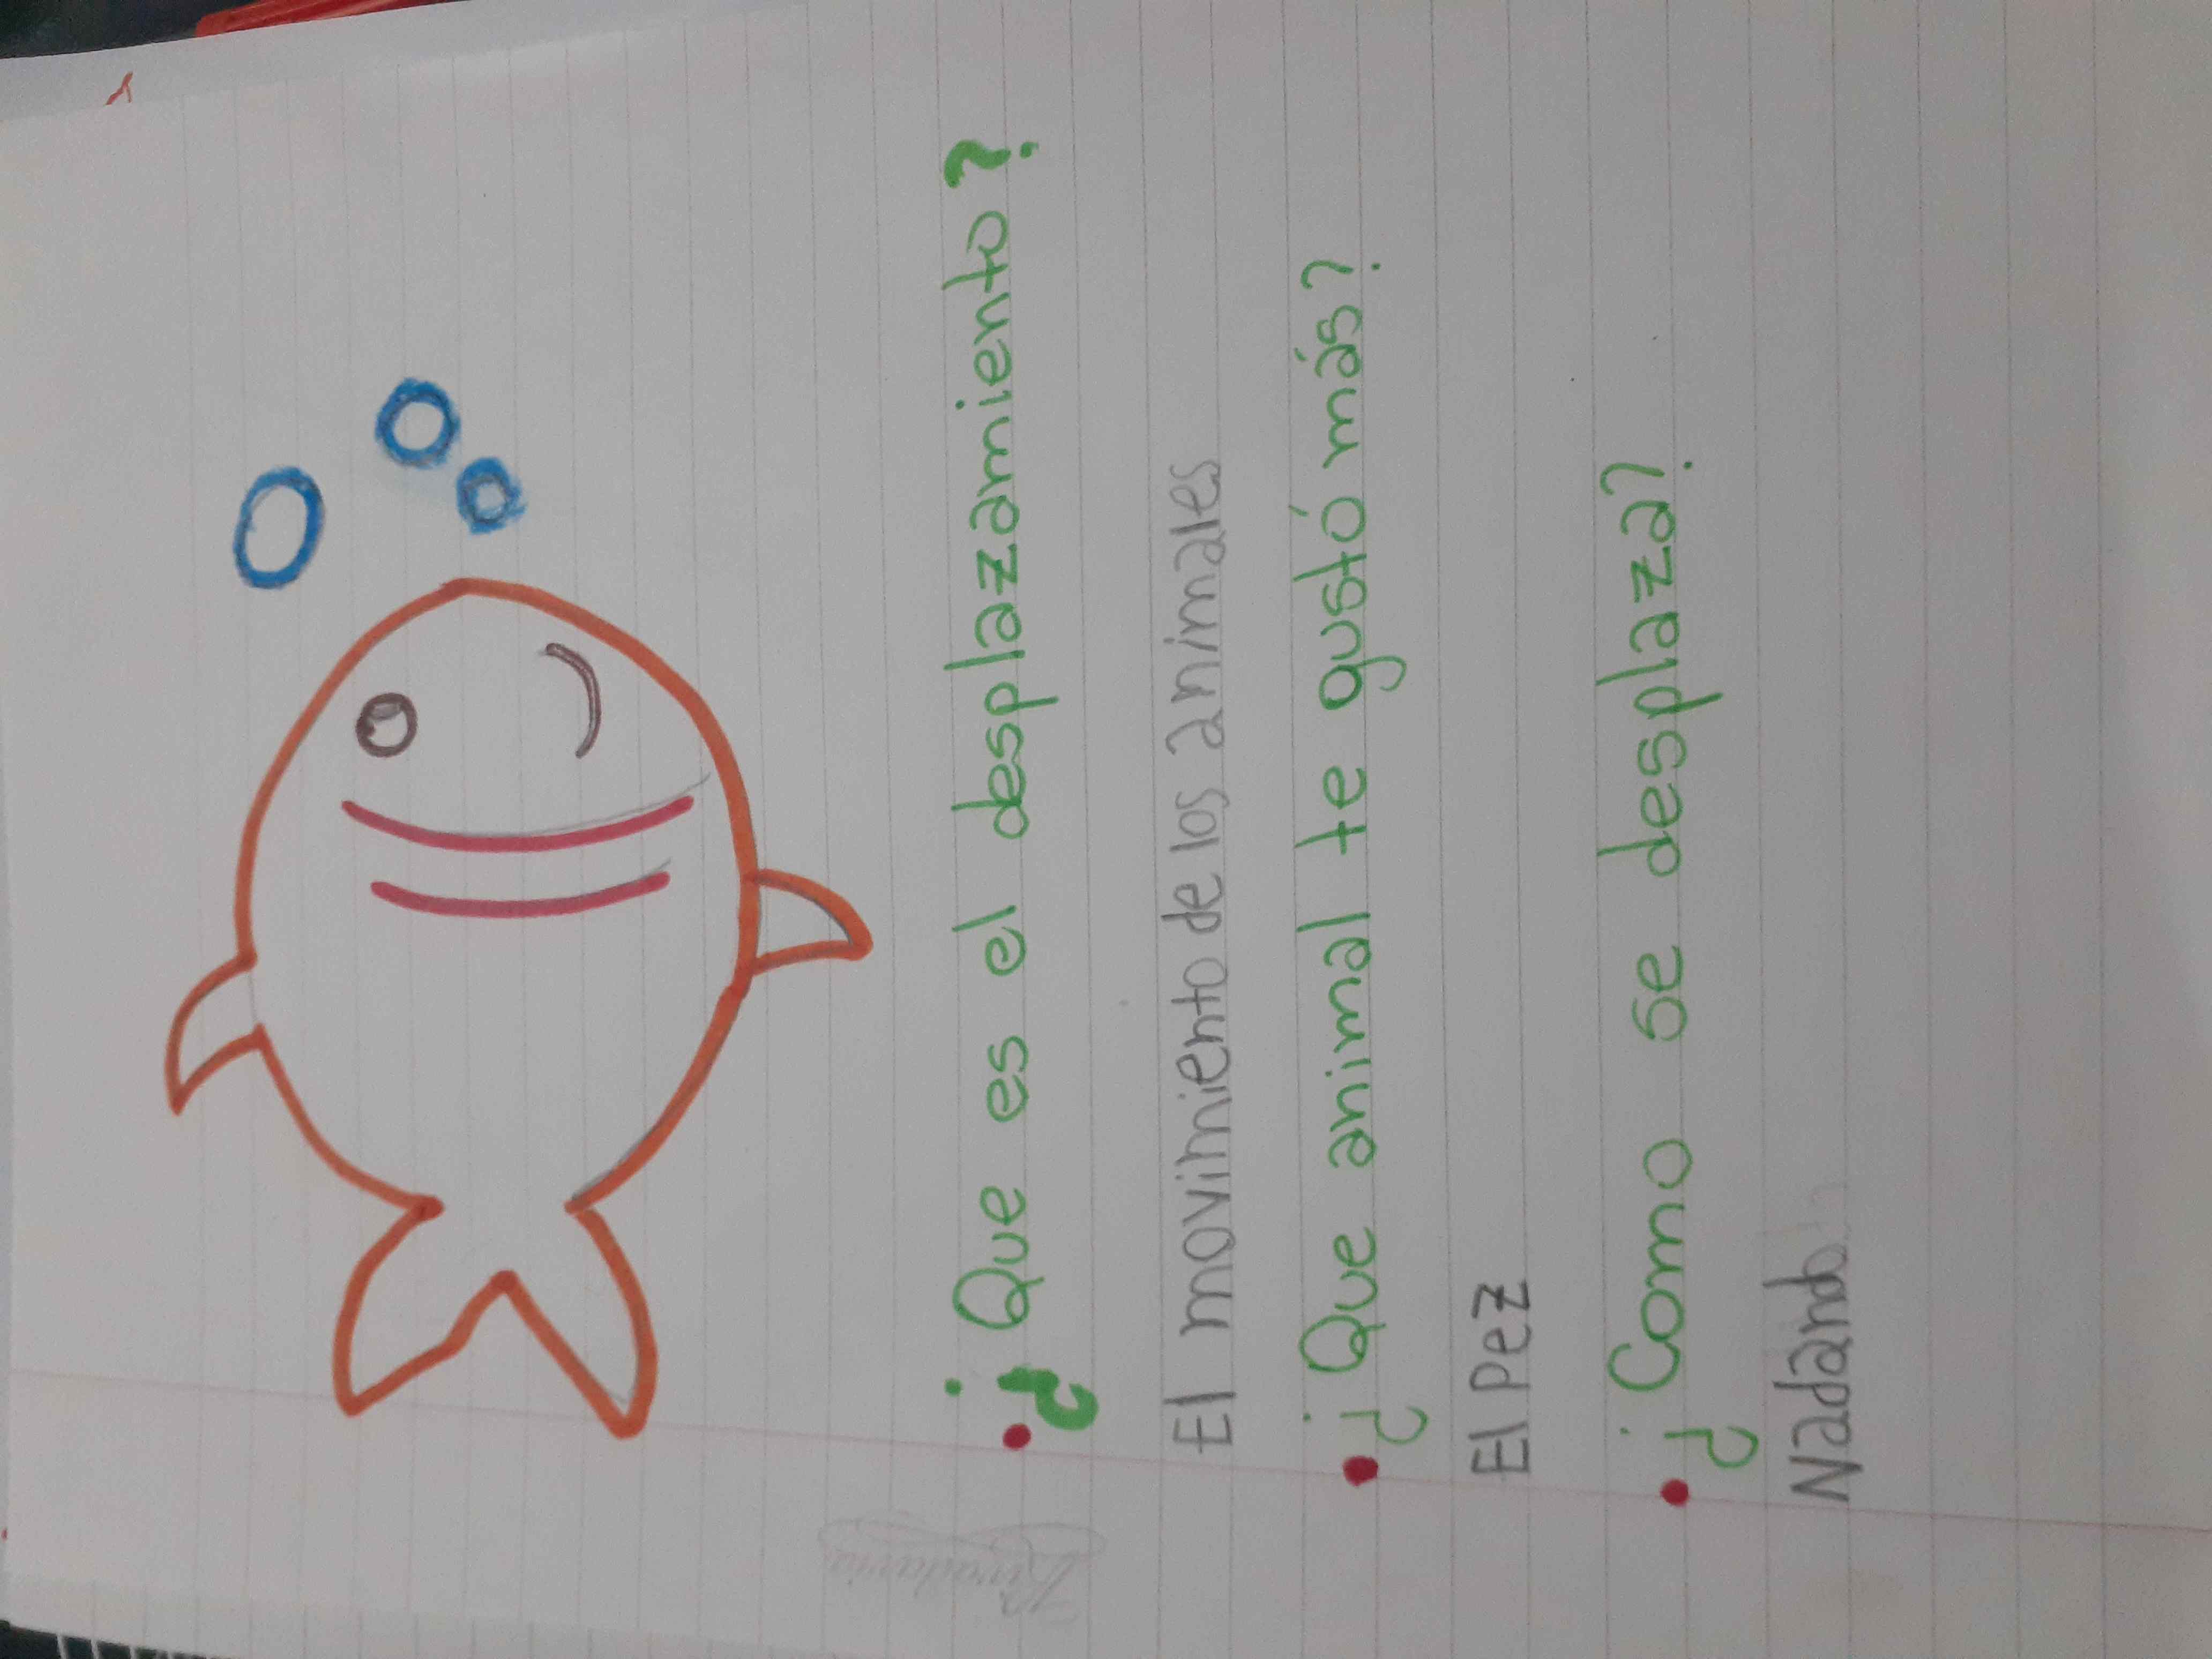 ¿Que es el desplazamiento?
El movimiento de los animales
¿Que animal te gustó más?
El Pez
¿Como se desplaza?
Nadando.